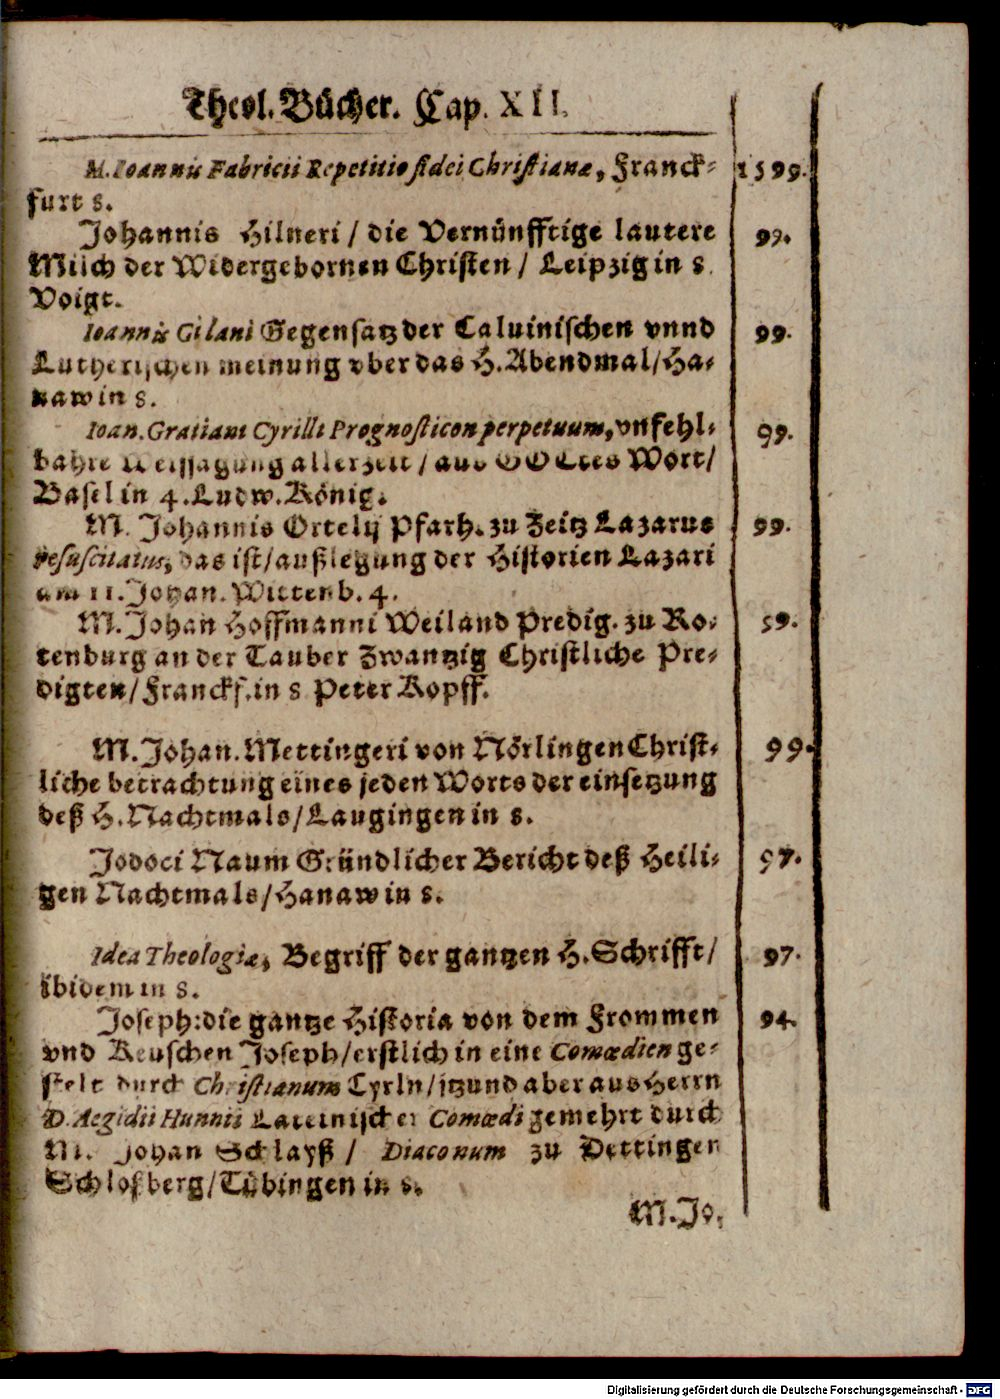 Theol. Bücher. Cap. XII.
M. Ioannis Fabricii Repetitio fidei Christianæ, Franck- 1599.
furt 8.
Johannis Hilneri / die Vernünfftige lautere 99.
Milch der Widergebornen Christen / Leipzig in 8.
Voigt.
Ioannis Gilani Gegensatz der Caluinischen vnnd 99.
Lutherischen meinung vber das H. Abendmal/Ha-
naw in 8.
Ioan. Gratiani Cyrilli Prognosticon perpetuum, vnfehl- 99.
bahre Weissagung aller zeit / aus GOttes Wort/
Basel in 4. Ludw. König.
M. Johannis Ortelij Pfarh. zu Zeitz Lazarus 99.
resuscitatus, das ist/außlegung der Historien Lazari
am 11. Johan. Wittenb. 4.
M. Johan Hoffmanni Weiland Predig. zu Ro- 59.
tenburg an der Tauber Zwantzig Christliche Pre-
digten/Franckf. in 8 Peter Kopff.
M. Johan. Mettingeri von Nörlingen Christ- 99.
liche betrachtung eines jeden Worts der einsetzung
deß H. Nachtmals/Laugingen in 8.
Jodoci Naum Gründlicher Bericht deß Heili- 97.
gen Nachtmals/Hanaw in 8.
Idea Theologiæ, Begriff der gantzen H. Schrifft/ 97.
ibidem in 8.
Joseph: die gantze Historia von dem Frommen 94.
vnd Keuschen Joseph/erstlich in eine Comœdien ge-
stelt durch Christianum Cyrln/jtzund aber aus Herrn
D. Aegidii Hunnii Lateinischer Comœdi gemehrt durch
M. Johan Schlayß / Diaconum zu Dettingen
Schloßberg/Tübingen in 8.
M. Jo-
Digitalisierung gefördert durch die Deutsche Forschungsgemeinschaft - DFG